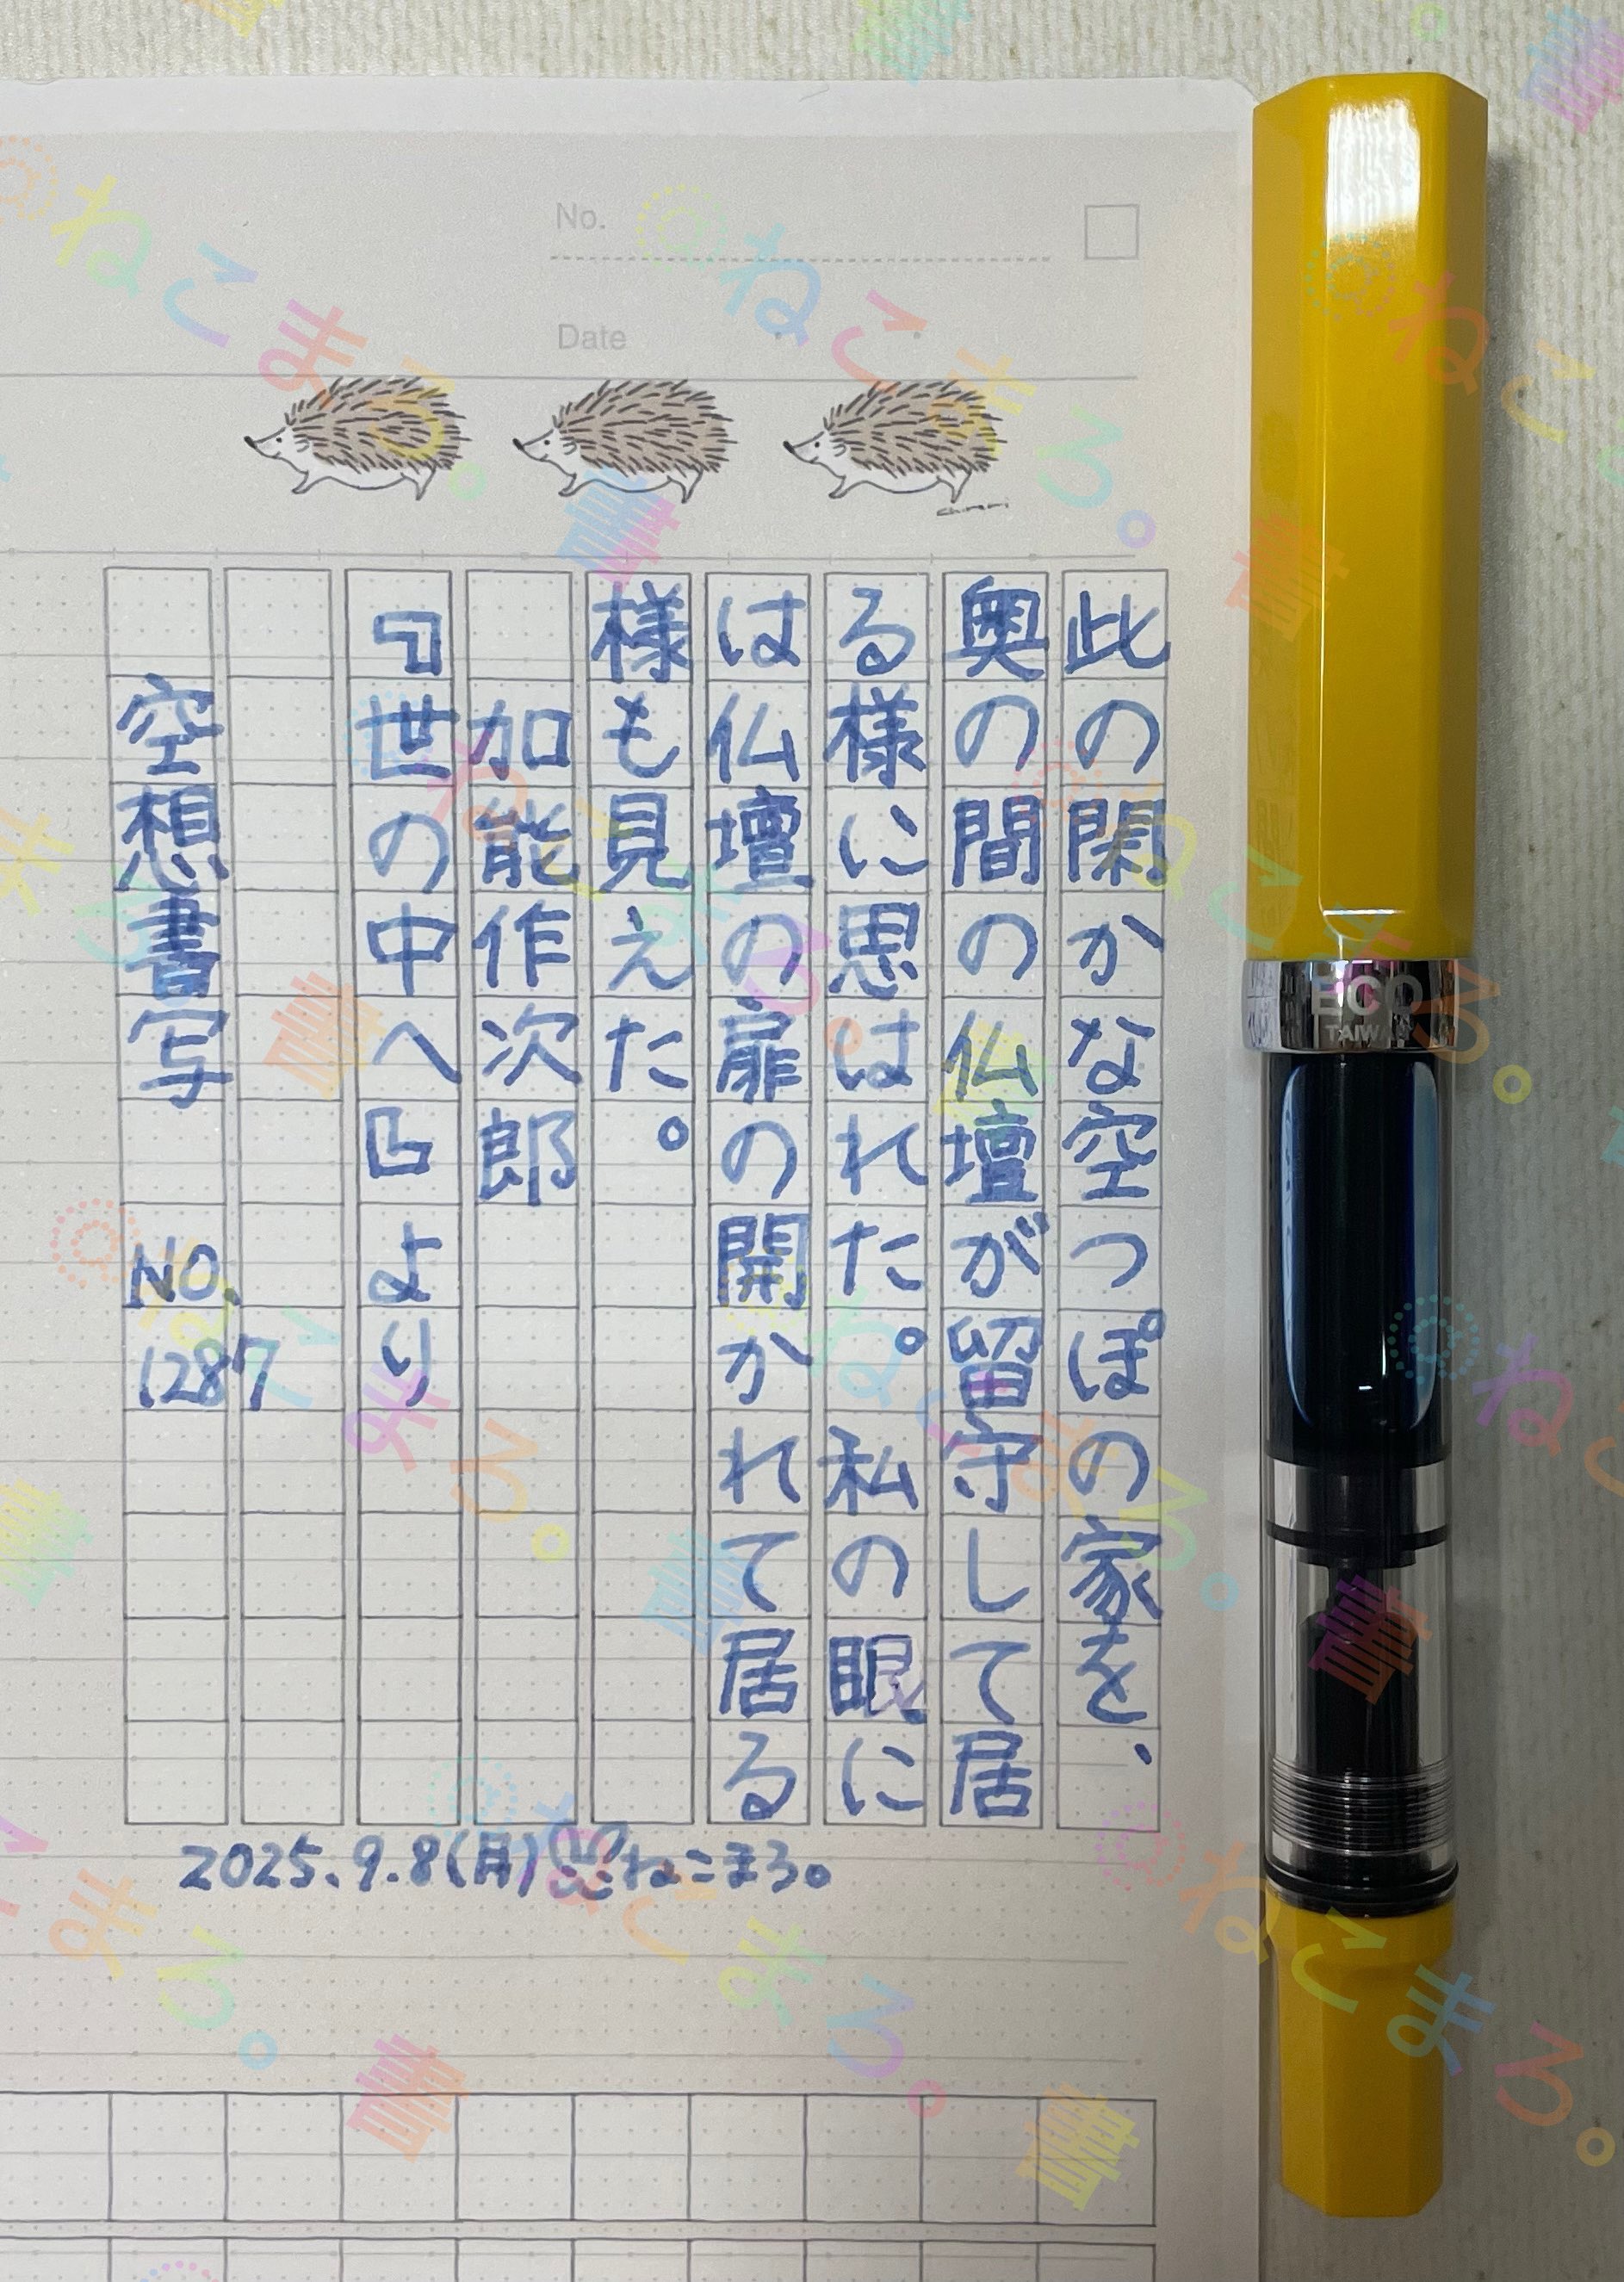 No.
Date
此の閑かな空っぽの家を、
奥の間の仏壇が留守して居
る様に思はれた。私の眼に
は仏壇の扉の開かれて居る
様も見えた。
加能作次郎
『世の中へ』より
空想書写 NO.1287
2025.9.8(月)ねこまろ。
ECO
TAIWAN
@ねこまろ。書